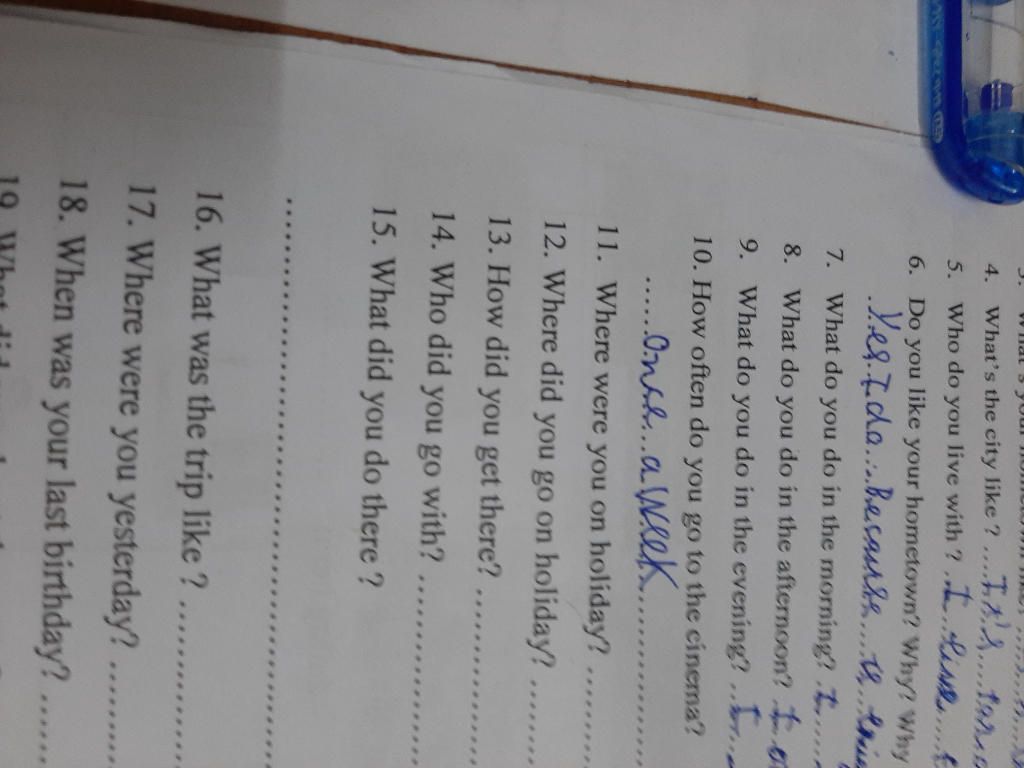 4. What's the city like ? .... It's ....
5. Who do you live with ? . I .. live ....
6. Do you like your hometown? Why? Why
.. Yes, I do ... Because .... is
7. What do you do in the morning? . I .....
8. What do you do in the afternoon? I
9. What do you do in the evening? .. I ..
10. How often do you go to the cinema?
...... Once ... a week ....................
11. Where were you on holiday? ..........
12. Where did you go on holiday? .......
13. How did you get there? .................
14. Who did you go with? ..................
15. What did you do there ?
............................................................
16. What was the trip like ? ................
17. Where were you yesterday? ..........
18. When was your last birthday? ......
19. What did